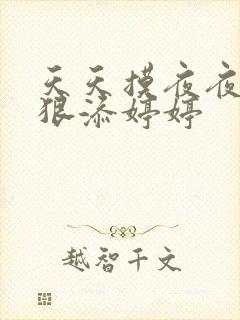 天天摸夜夜
狠添婷婷
越智千文